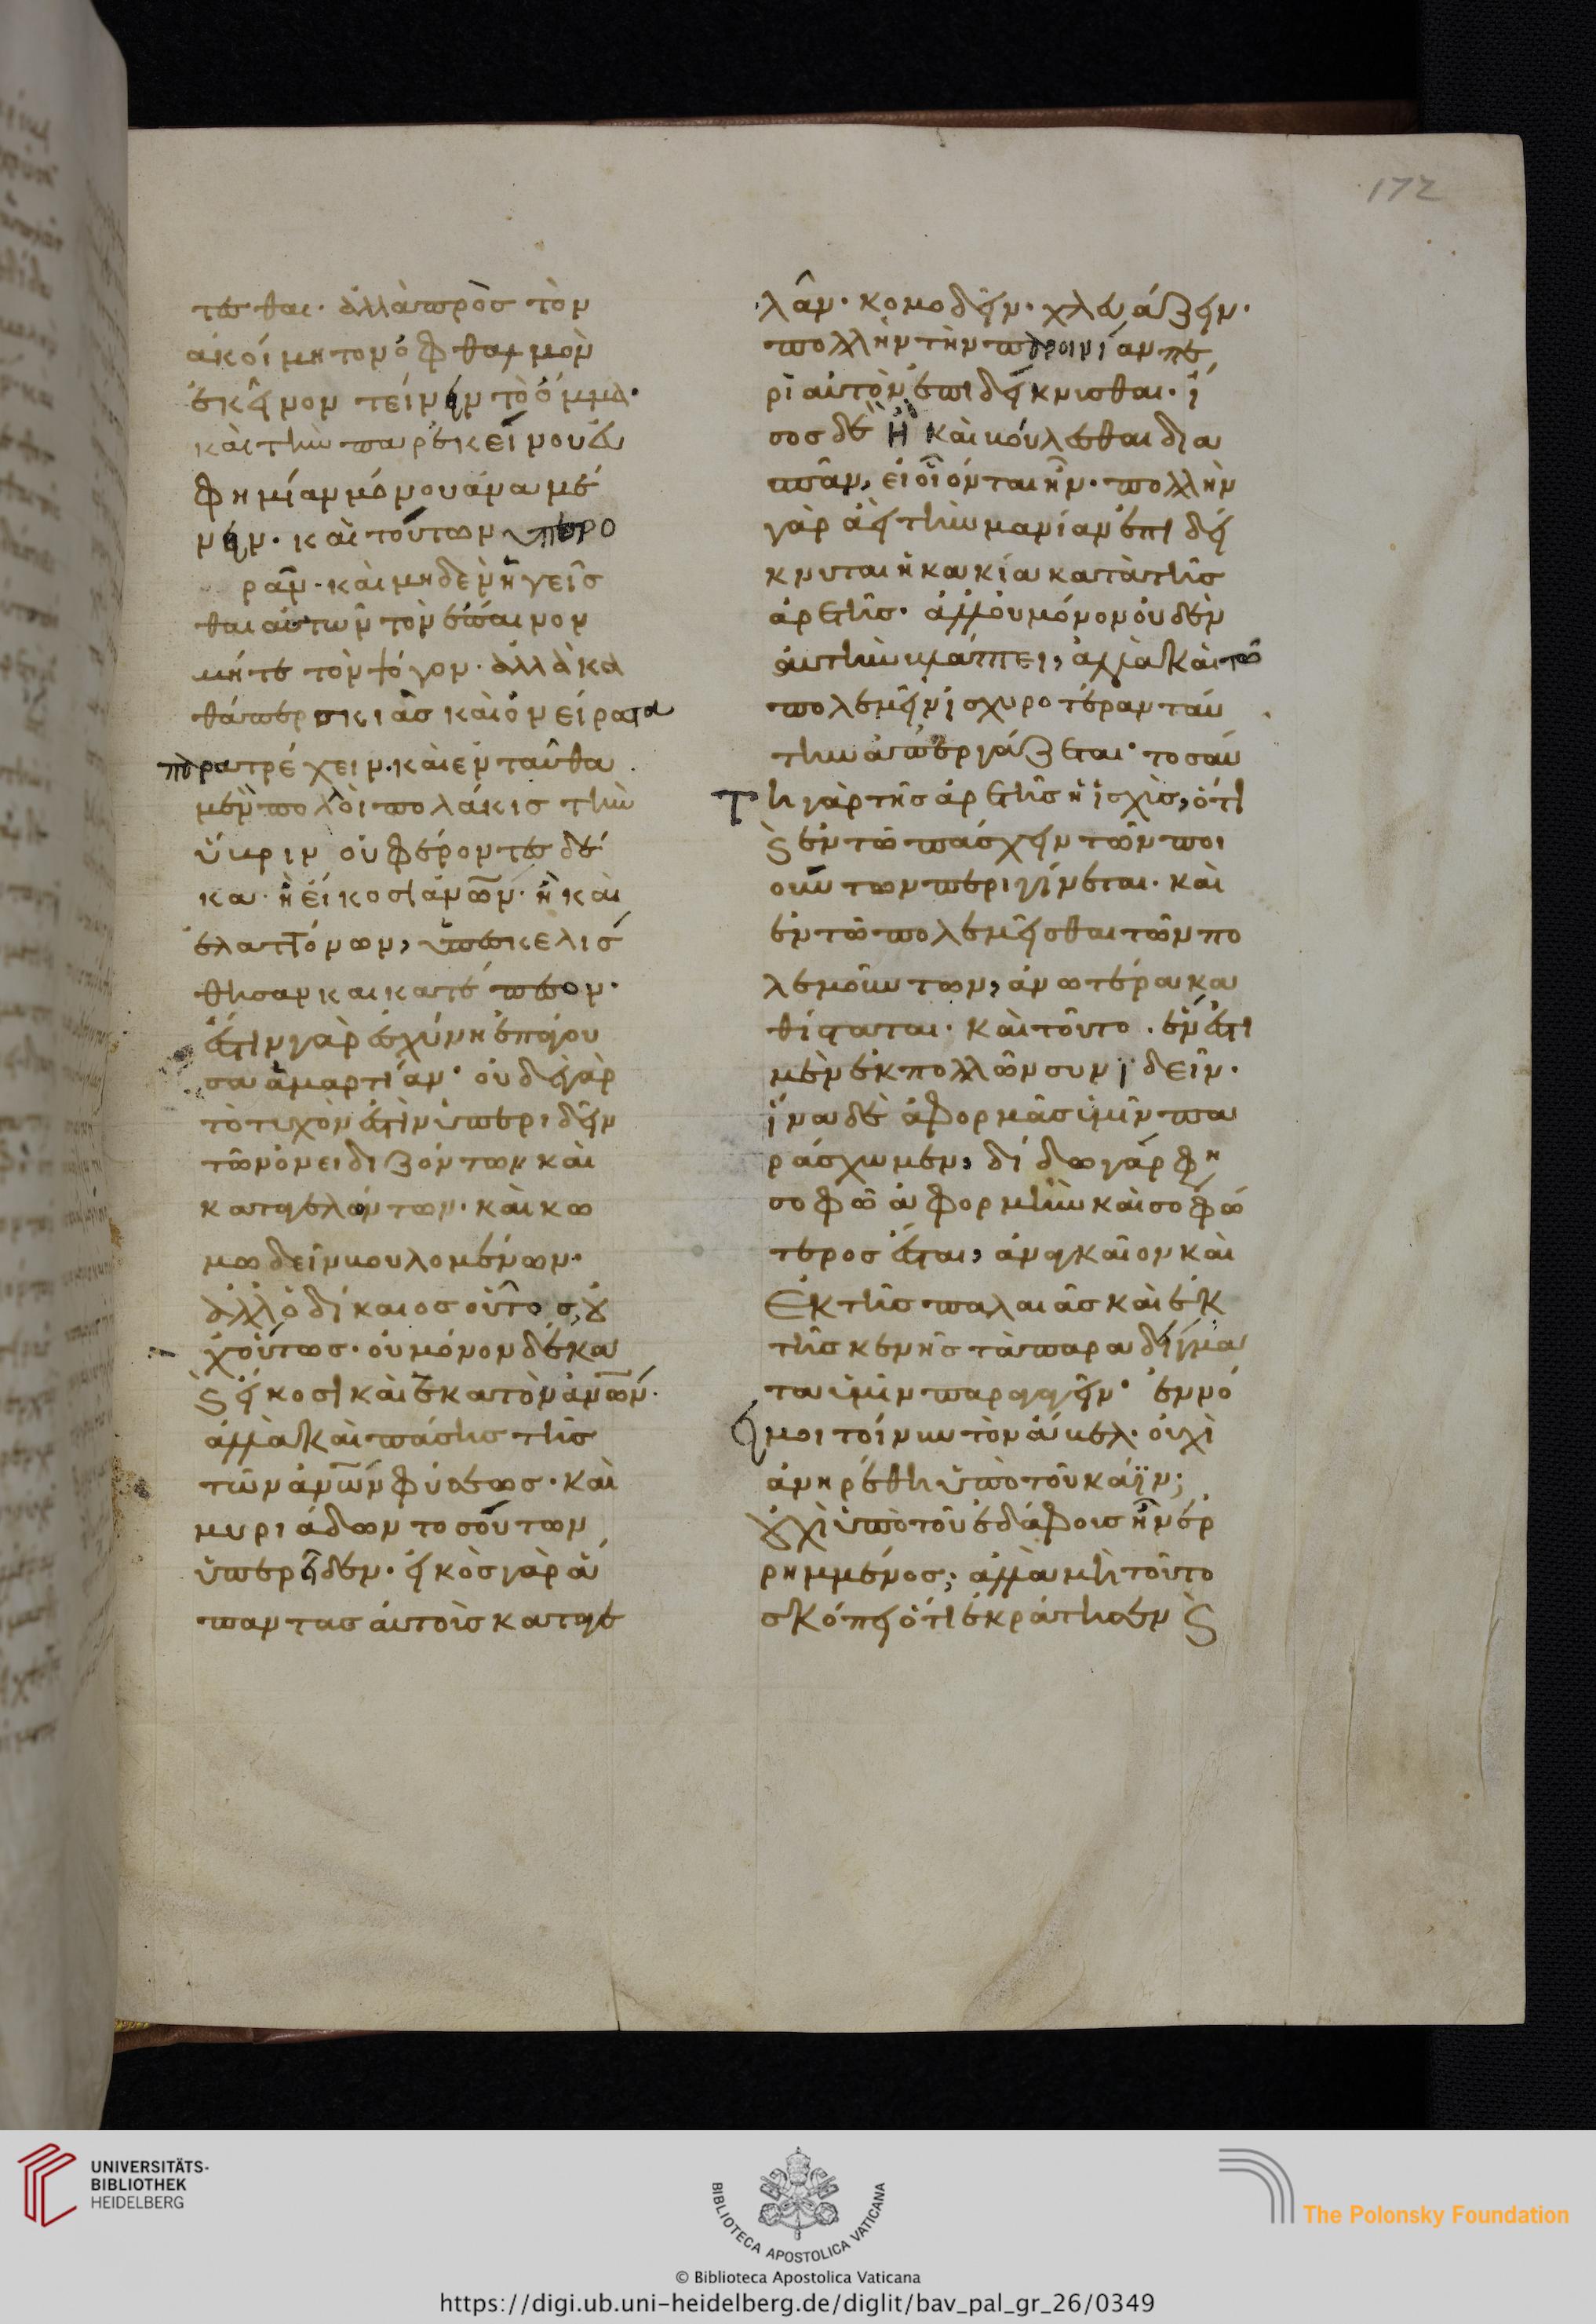 172
τεσθαι· ἀλλὰ πρὸς τὸν
ἀκοίμητον ὀφθαλμὸν
ἐκεῖνον τείνειν τὸ ὄμμα·
καὶ τὴν παρ' ἐκείνου εὐ
φημίαν μόνου ἀναμέ
νειν· καὶ τούτων ὑπερο
ρᾶν· καὶ μηδὲν ἡγεῖσ
θαι αὐτῶν τὸν ἔπαινον
μήτε τὸν ψόγον· ἀλλὰ κα
θάπερ σκιὰς καὶ ὀνείρατα
παρατρέχειν· καὶ ἐνταῦθα
μὲν πολλοὶ πολάκις τὴν
ὕβριν οὐ φέροντες δέ
κα· ἢ εἴκοσι ἀνων· ἢ καὶ
ἐλαττόνων, ὑπεσκελίσ
θησαν καὶ κατέπεσον·
ἔστιν γὰρ ἐσχύνη ἐπάγου
σα ἁμαρτίαν· οὐδὲ γὰρ
τὸ τυχὸν ἐστὶν ὑπεριδεῖν
τῶν ὀνειδιζόντων καὶ
καταγελώντων· καὶ κω
μωδεῖν βουλομένων·
ἀλλ' ὁ δίκαιος οὗτος, οὐ
χ' οὕτως· οὐ μόνον δέκα
καὶ εἴκοσι καὶ ἑκατὸν ἀνων·
ἀλλὰ καὶ πάσης τῆς
τῶν ἀνων φύσεως· καὶ
μυριάδων τοσούτων
ὑπερεῖδεν· εἰκὸς γὰρ ἅ
παντας αὐτοὺς καταγε
λᾶν· κομοδεῖν· χλευάζειν·
πολλὴν τὴν παροινίαν πε
ρὶ αὐτὸν ἐπιδείκνισθαι· ἴ
σος δὲ ἢ καὶ βούλεσθαι δια
σπᾶν, εἰ οἷον ται ἦν· πολλὴν
γὰρ ἀεὶ τὴν μανίαν ἐπιδεί
κνυται ἡ κακία κατὰ τῆς
ἀρετῆς· ἀλλ' οὐ μόνον οὐδὲν
αὐτὴν βλάπτει, ἀλλὰ καὶ τῶ
πολεμεῖν ἰσχυροτέραν ταύ
την ἀπεργάζεται· τοσαύ
τη γὰρ τῆς ἀρετῆς ἡ ἰσχὺς, ὅτι
καὶ ἐν τῶ πάσχειν τῶν ποι
ούντων περιγίνεται· καὶ
ἐν τῶ πολεμεῖσθαι τῶν πο
λεμούντων, ἀνωτέρα κα
θίσταται· καὶ τοῦτο· ἔνεστι
μὲν ἐκ πολλῶν συνιδεῖν·
ἵνα δὲ ἀφορμὰς ὑμῖν πα
ράσχωμεν, δίδω γάρ φη
σοφῶ ἀφορμὴν καὶ σοφώ
τερος ἔσται, ἀναγκαῖον καὶ
ἐκ τῆς παλαιᾶς καὶ ἐκ
τῆς κενῆς τὰ παραδείγμα
τα ὑμῖν παραγαγεῖν· ἐννό
ει μοι τοίνυν τὸν ἄβελ· οὐχὶ
ἀνηρέθη ὑπὸ τοῦ κάϊν;
οὐχὶ ὑπὸ τοῦ ἐδάφους ἦν ἐρ
ρημμένος; ἀλλὰ μὴ τοῦτο
σκόπει ὅτι ἐκράτησεν καὶ
UNIVERSITÄTS-
BIBLIOTHEK
HEIDELBERG
BIBLIOTECA APOSTOLICA VATICANA
The Polonsky Foundation
© Biblioteca Apostolica Vaticana
https://digi.ub.uni-heidelberg.de/diglit/bav_pal_gr_26/0349